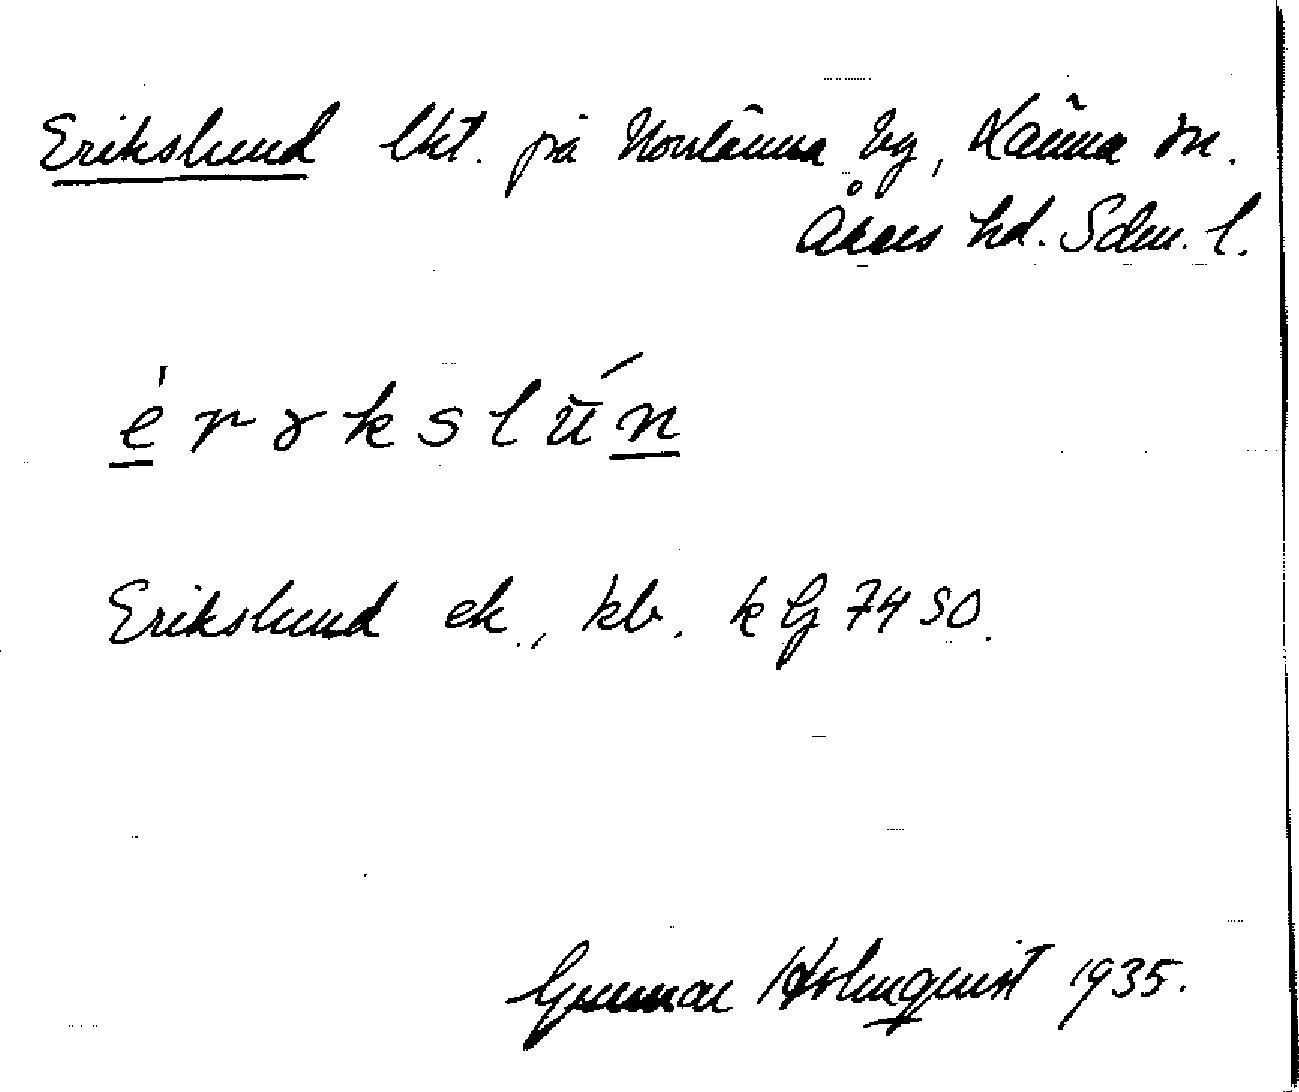 Erikslund lkt. på Norrlänna äg, Länna sn.
Åkers hd. Sdm. l.
é r ɤ k s l ŭ́ n
Erikslund ek., kb. k Ij 74 SO.
Gunnar Holmquist 1935.